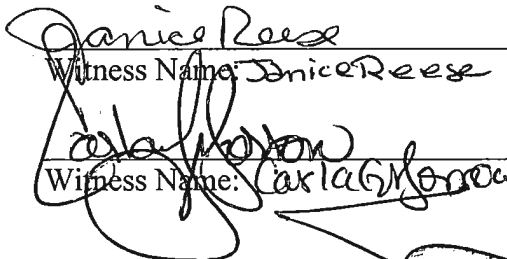 Janice Reese
Witness Name: Janice Reese
Witness Name: Carla G Morrow